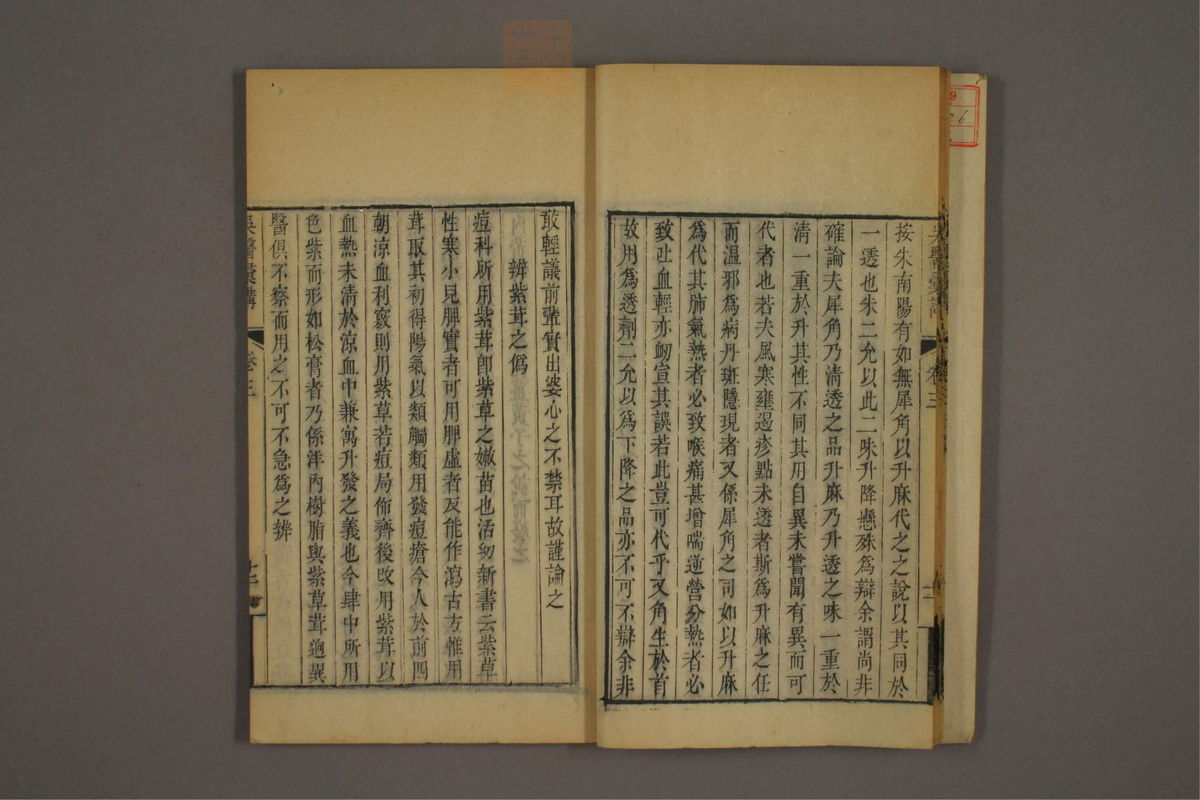 按朱南陽有如無犀角以升麻代之之說以其同於
一透也朱二允以此二味升降懸殊為辯余謂尚非
確論夫犀角乃清透之品升麻乃升透之味一重於
清一重於升其性不同其用自異未嘗聞有異而可
代者也若夫風寒壅遏疹點未透者斯為升麻之任
而溫邪為病丹斑隱現者又係犀角之司如以升麻
為代其肺氣熱者必致喉痛甚增喘逆營分熱者必
致吐血輕亦衂宣其誤若此豈可代乎又角生於首
故用為透劑二允以為下降之品亦不可不辯余非
卷三
敢輕議前輩實出婆心之不禁耳故謹論之
辨紫茸之偽
痘科所用紫茸卽紫草之嫩苗也活幼新書云紫草
性寒小兒脾實者可用脾虛者反能作瀉古方惟用
茸取其初得陽氣以類觸類用發痘瘡今人於前四
朝涼血利竅則用紫草若痘局佈齊後改用紫茸以
血熱未清於涼血中兼寓升發之義也今肆中所用
色紫而形如松膏者乃係洋內樹脂與紫草茸迥異
醫俱不察而用之不可不急為之辨
吳醫彙講
卷三
十二